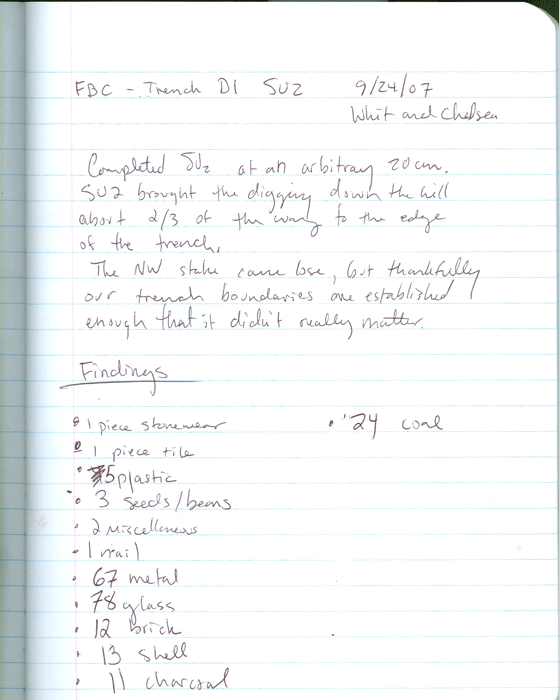 FBC - Trench D1 SU2 9/24/07
Whit and Chelsea
Completed SU2 at an arbitray 20 cm.
SU2 brought the digging down the hill
about 2/3 of the way to the edge
of the trench.
The NW stake came lose, but thankfully
our trench boundaries are established
enough that it didn't really matter.
Findings
• 1 piece stonewear
• 24 coal
• 1 piece tile
• 5 plastic
• 3 seeds/beans
• 2 miscellaneous
• 1 nail
• 67 metal
• 78 glass
• 12 brick
• 13 shell
• 11 charcoal